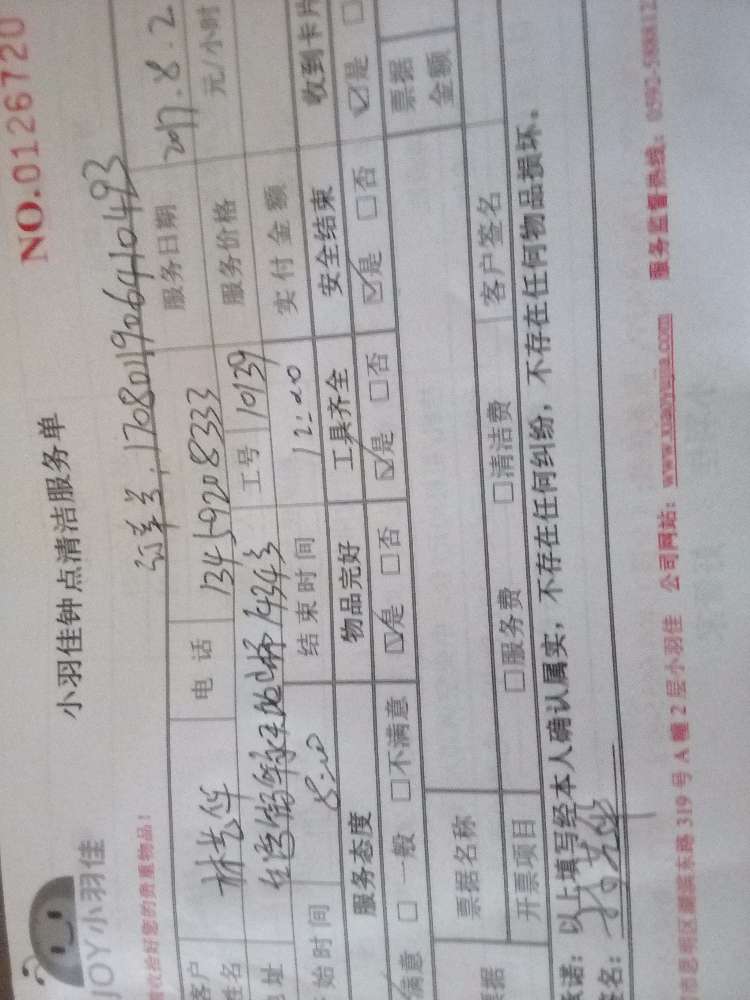 JOY小羽佳
小羽佳钟点清洁服务单
NO.0126720
请收拾好您的贵重物品!
订单号:17080119064410493
客户姓名 电话 13459208333 服务日期 2017.8.2
地址 工号 10139 服务价格 元/小时
开始时间 8:00 结束时间 12:00 实付金额
服务态度 物品完好 工具齐全 安全结束 收到卡片
☑满意 □一般 □不满意 ☑是 □否 ☑是 □否 ☑是 □否 ☑是 □
票据名称 票据金额
票据
开票项目 □服务费 □清洁费 客户签名
承诺:以上填写经本人确认属实,不存在任何纠纷,不存在任何物品损坏。
签名:
市思明区湖滨东路319号A幢2层小羽佳 公司网站:www.xiaoyujia.com 服务监督热线:0592-588812